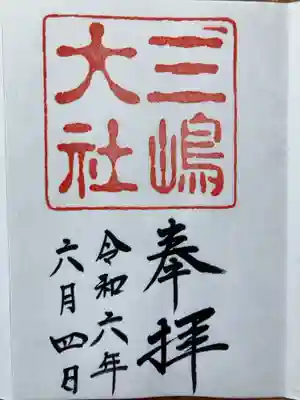 三嶋
大社
奉拝
令和六年
六月四日